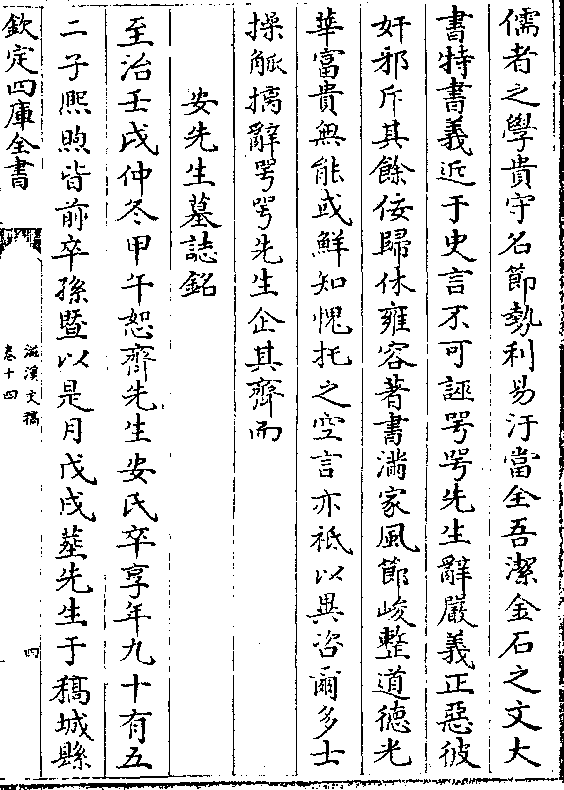 儒者之學貴守名節勢利易汙當全吾潔金石之文大
書特書義近于史言不可誣咢咢先生辭嚴義正惡彼
奸邪斥其餘佞歸休雍容著書滿家風節峻整道德光
華富貴無能或鮮知愧托之空言亦祗以異咨爾多士
操觚摛辭咢咢先生企其齊而
安先生墓誌銘
至治壬戌仲冬甲午恕齋先生安氏卒享年九十有五
二子熙煦皆前卒孫暨以是月戊戌塟先生于稿城縣
欽定四庫全書
滋溪文稿
卷十四
四